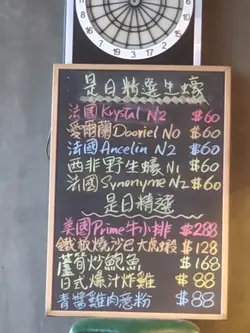 是日精選生蠔
法國 Krystal N2 $60
愛爾蘭 Dooriel N0 $60
法國 Ancelin N2 $60
西非野生蠔 N1 $60
法國 Synonyme N2 $60
是日精選
美國 Prime 牛小排 $288
鐵板燒沙巴大虎蝦 $128
蘆筍炒鮑魚 $168
日式爆汁炸雞 $88
青醬雞肉意粉 $88